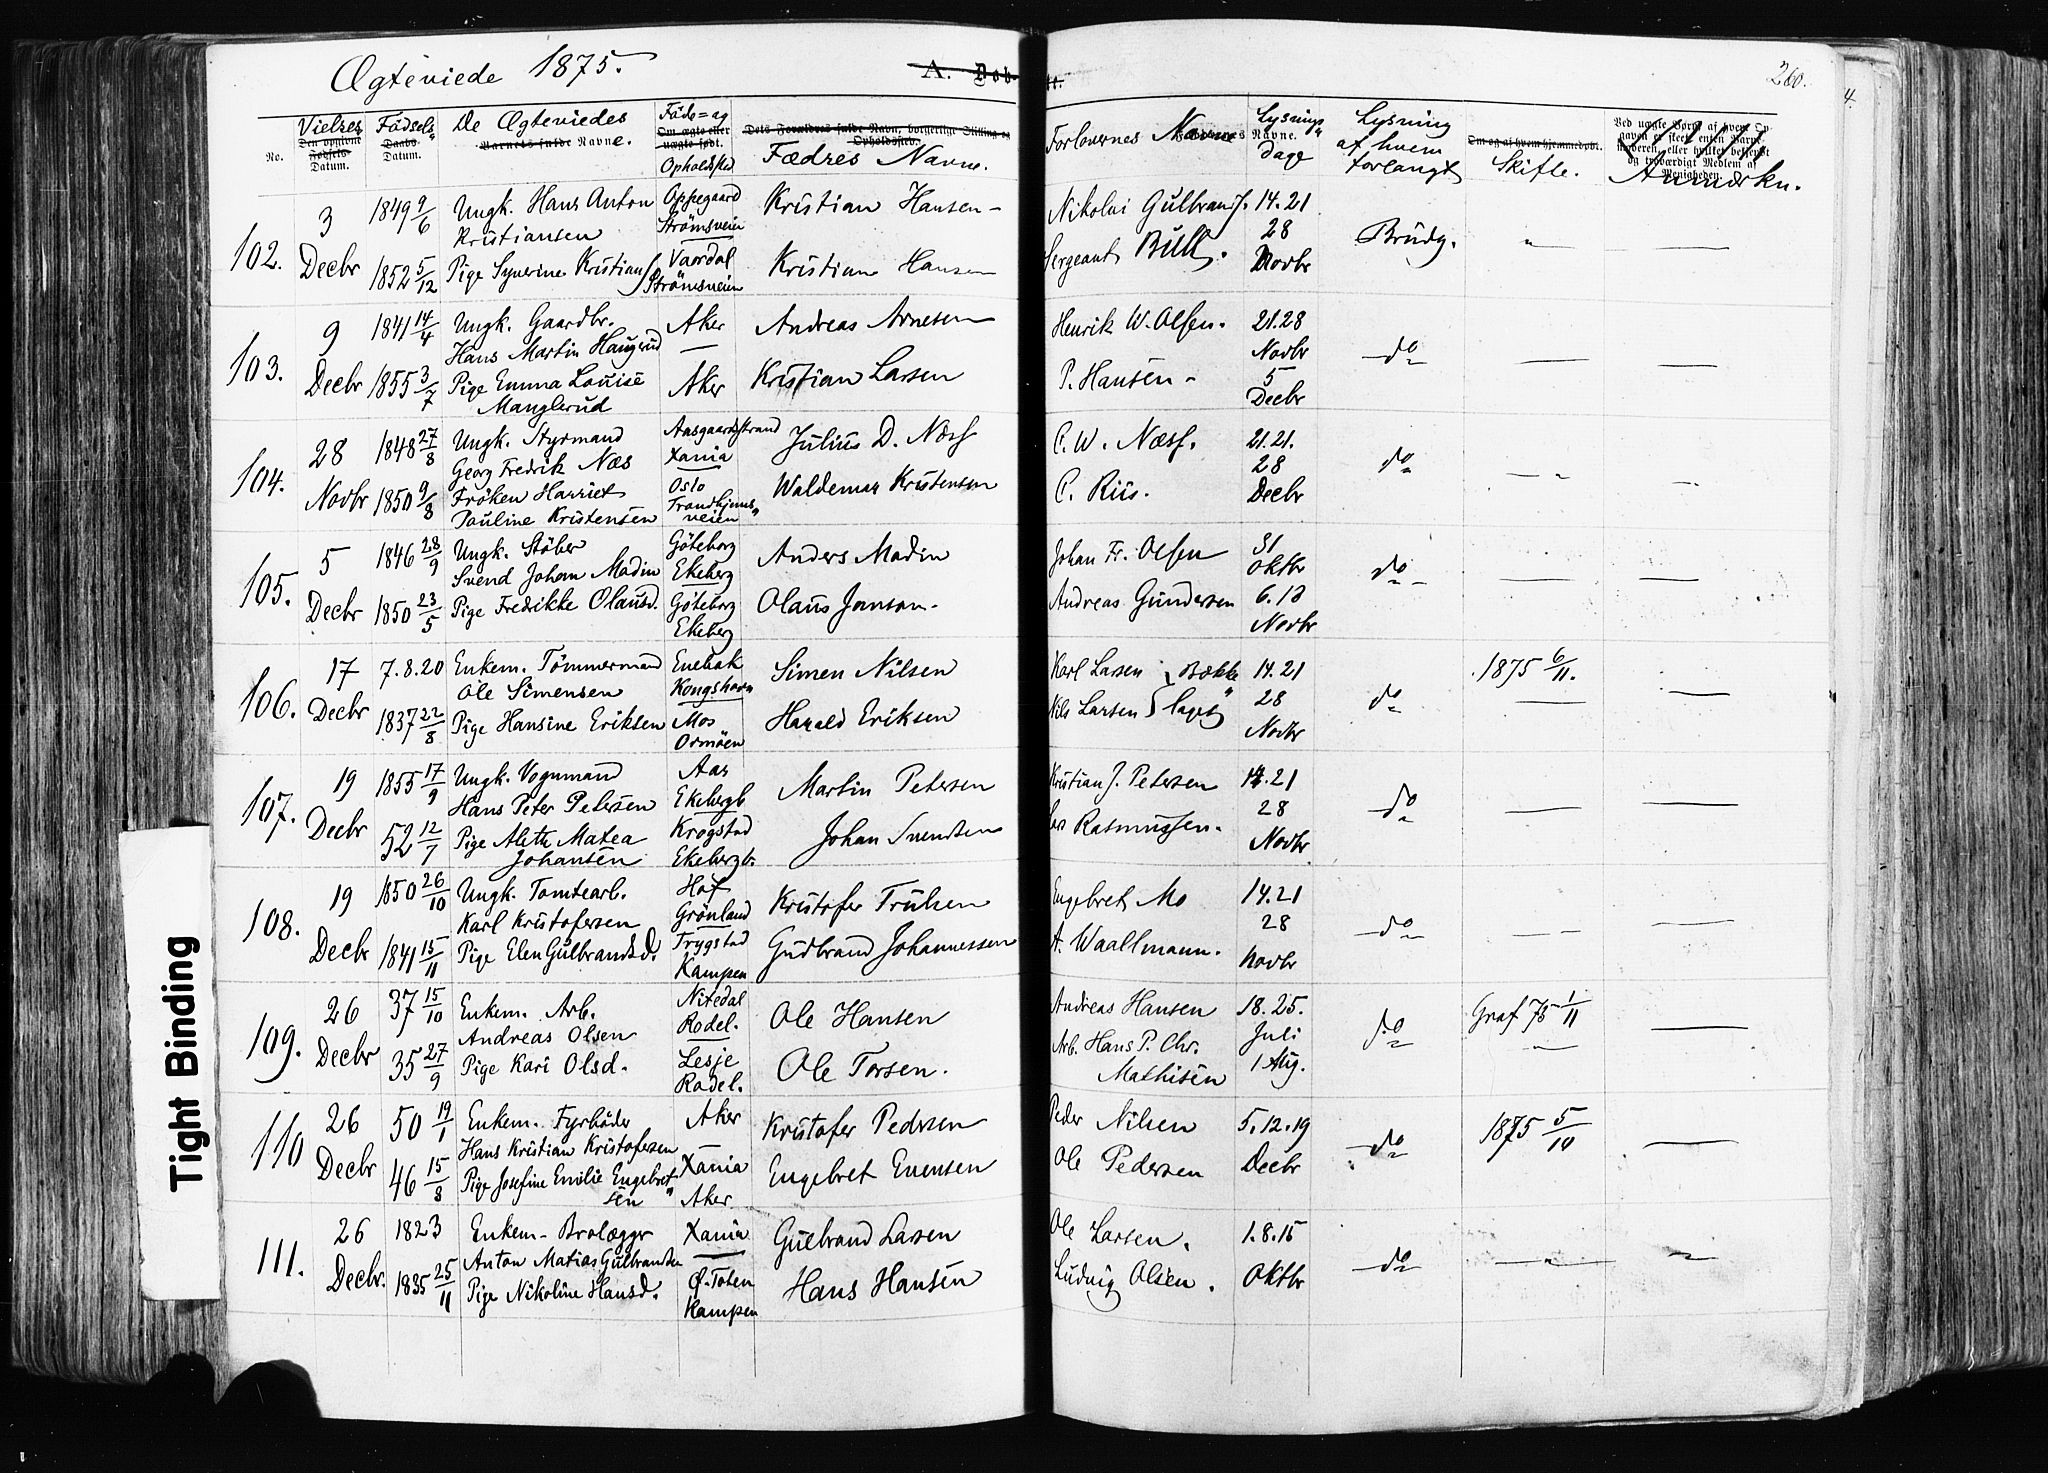 Ægteviede 1875.
A. Døb
260.
4.
No.
Vielses
Den opgivne
Fødsels
Datum.
Fødsels"
Daabs
Datum.
De Ægteviedes
Barnets fulde Navne.
Føde= og
Om ægte eller
uægte født.
Opholdssted
Dets Forældres fulde Navn, borgerlige Stilling og
Opholdssted.
Fædres Navne.
Forlovernes Navne
Navne.
Lysnings"
dage
Lysning
af hvem
forlangt
Om og af hvem hjemmedøbt.
Skifte.
Ved uægte Børn
Anmærkn.
102.
3
Decbr
1849 9/6
Ungk. Hans Anton
Kristiansen
Oppegaard
Strömsveien
Kristian Hansen -
Nikolai Gulbrans.
14. 21
28
Novbr
Brudg.
"
1852 5/12
Pige Syverine Kristians
Vaardal
Strömsveien
Kristian Hansen
Sergeant Bull.
103.
9
Decbr
1841 14/4
Ungk. Gaardbr.
Hans Martin Haugerud
Aker
Andreas Arnesen
Henrik W. Olsen.
21. 28
Novbr
5
Decbr
do
1855 3/7
Pige Emma Louise
Manglerud
Aker
Kristian Larsen
P. Hansen -
104.
28
Novbr
1848 27/8
Ungk. Styrmand
Georg Fredrik Næs
Aasgaardstrand
Xania
Julius D. Næss
C. W. Næss.
21. 21.
28
Decbr
do
1850 9/8
Fröken Harriet
Pauline Kristensen
Oslo
Trondhjems"
veien
Waldemar Kristensen
C. Riis.
105.
5
Decbr
1846 28/9
Ungk. Stöber
Svend Johan Madin
Göteborg
Ekeberg
Anders Madin
Johan Fr. Olsen
31
Oktbr
6. 13
Novbr
do
1850 23/5
Pige Fredrikke Olausd.
Göteborg
Ekeberg
Olaus Jonson.
Andreas Gundersen
106.
17
Decbr
7. 8. 20
Enkem. Tömmermand
Ole Simensen
Enebak
Kongshavn
Simen Nilsen
Karl Larsen } Bække
14. 21
28
Novbr
do
1875 6/11.
1837 22/8
Pige Hansine Eriksen
Mos
Ormöen
Harald Eriksen
Nils Larsen } laget
107.
19
Decbr
1855 17/9
Ungk. Vognmand
Hans Peter Petersen
Aas
Ekebergb
Martin Petersen
Kristian J. Petersen
14. 21
28
Novbr
do
52 12/7
Pige Alette Matea
Johansen
Krogstad
Ekebergb.
Johan Svendsen
Rasmussen.
108.
19
Decbr
1850 26/10
Ungk. Tomtearb.
Karl Kristofersen
Hof
Grönland
Kristofer Trulsen
Engebret Mo
14. 21
28
Novbr
do
1841 15/11
Pige Elen Gulbrandsd.
Trygstad
Kampen
Gudbrand Johannessen
A. Waallmann.
109.
26
Decbr
37 15/10
Enkem. Arb.
Andreas Olsen
Nitedal
Rodel.
Ole Hansen
Andreas Hansen
18. 25.
Juli
1 Aug.
do
Graf 75 1/11
35 27/9
Pige Kari Olsd.
Lesje
Rodel.
Ole Torsen.
Arb. Hans P. Chr.
Mathisen
110
26
Decbr
50 19/1
Enkem. Fyrböder
Hans Kristian Kristofersen
Aker
Kristofer Pedersen
Peder Nilsen
5. 12. 19
Decbr
do
1875 5/10
46 15/8
Pige Josefine Emilie Engebret"
sen
Xania
Aker
Engebret Evensen
Ole Pedersen
111.
26
Decbr.
1823
Enkem. Brolægger
Anton Matias Gulbrandsen
Xania
Gulbrand Larsen
Ole Larsen.
1. 8. 15
Oktbr
do
1835 25/11
Pige Nikoline Hansd.
Ø. Toten
Kampen
Hans Hansen
Ludvig Olsen.
Tight Binding